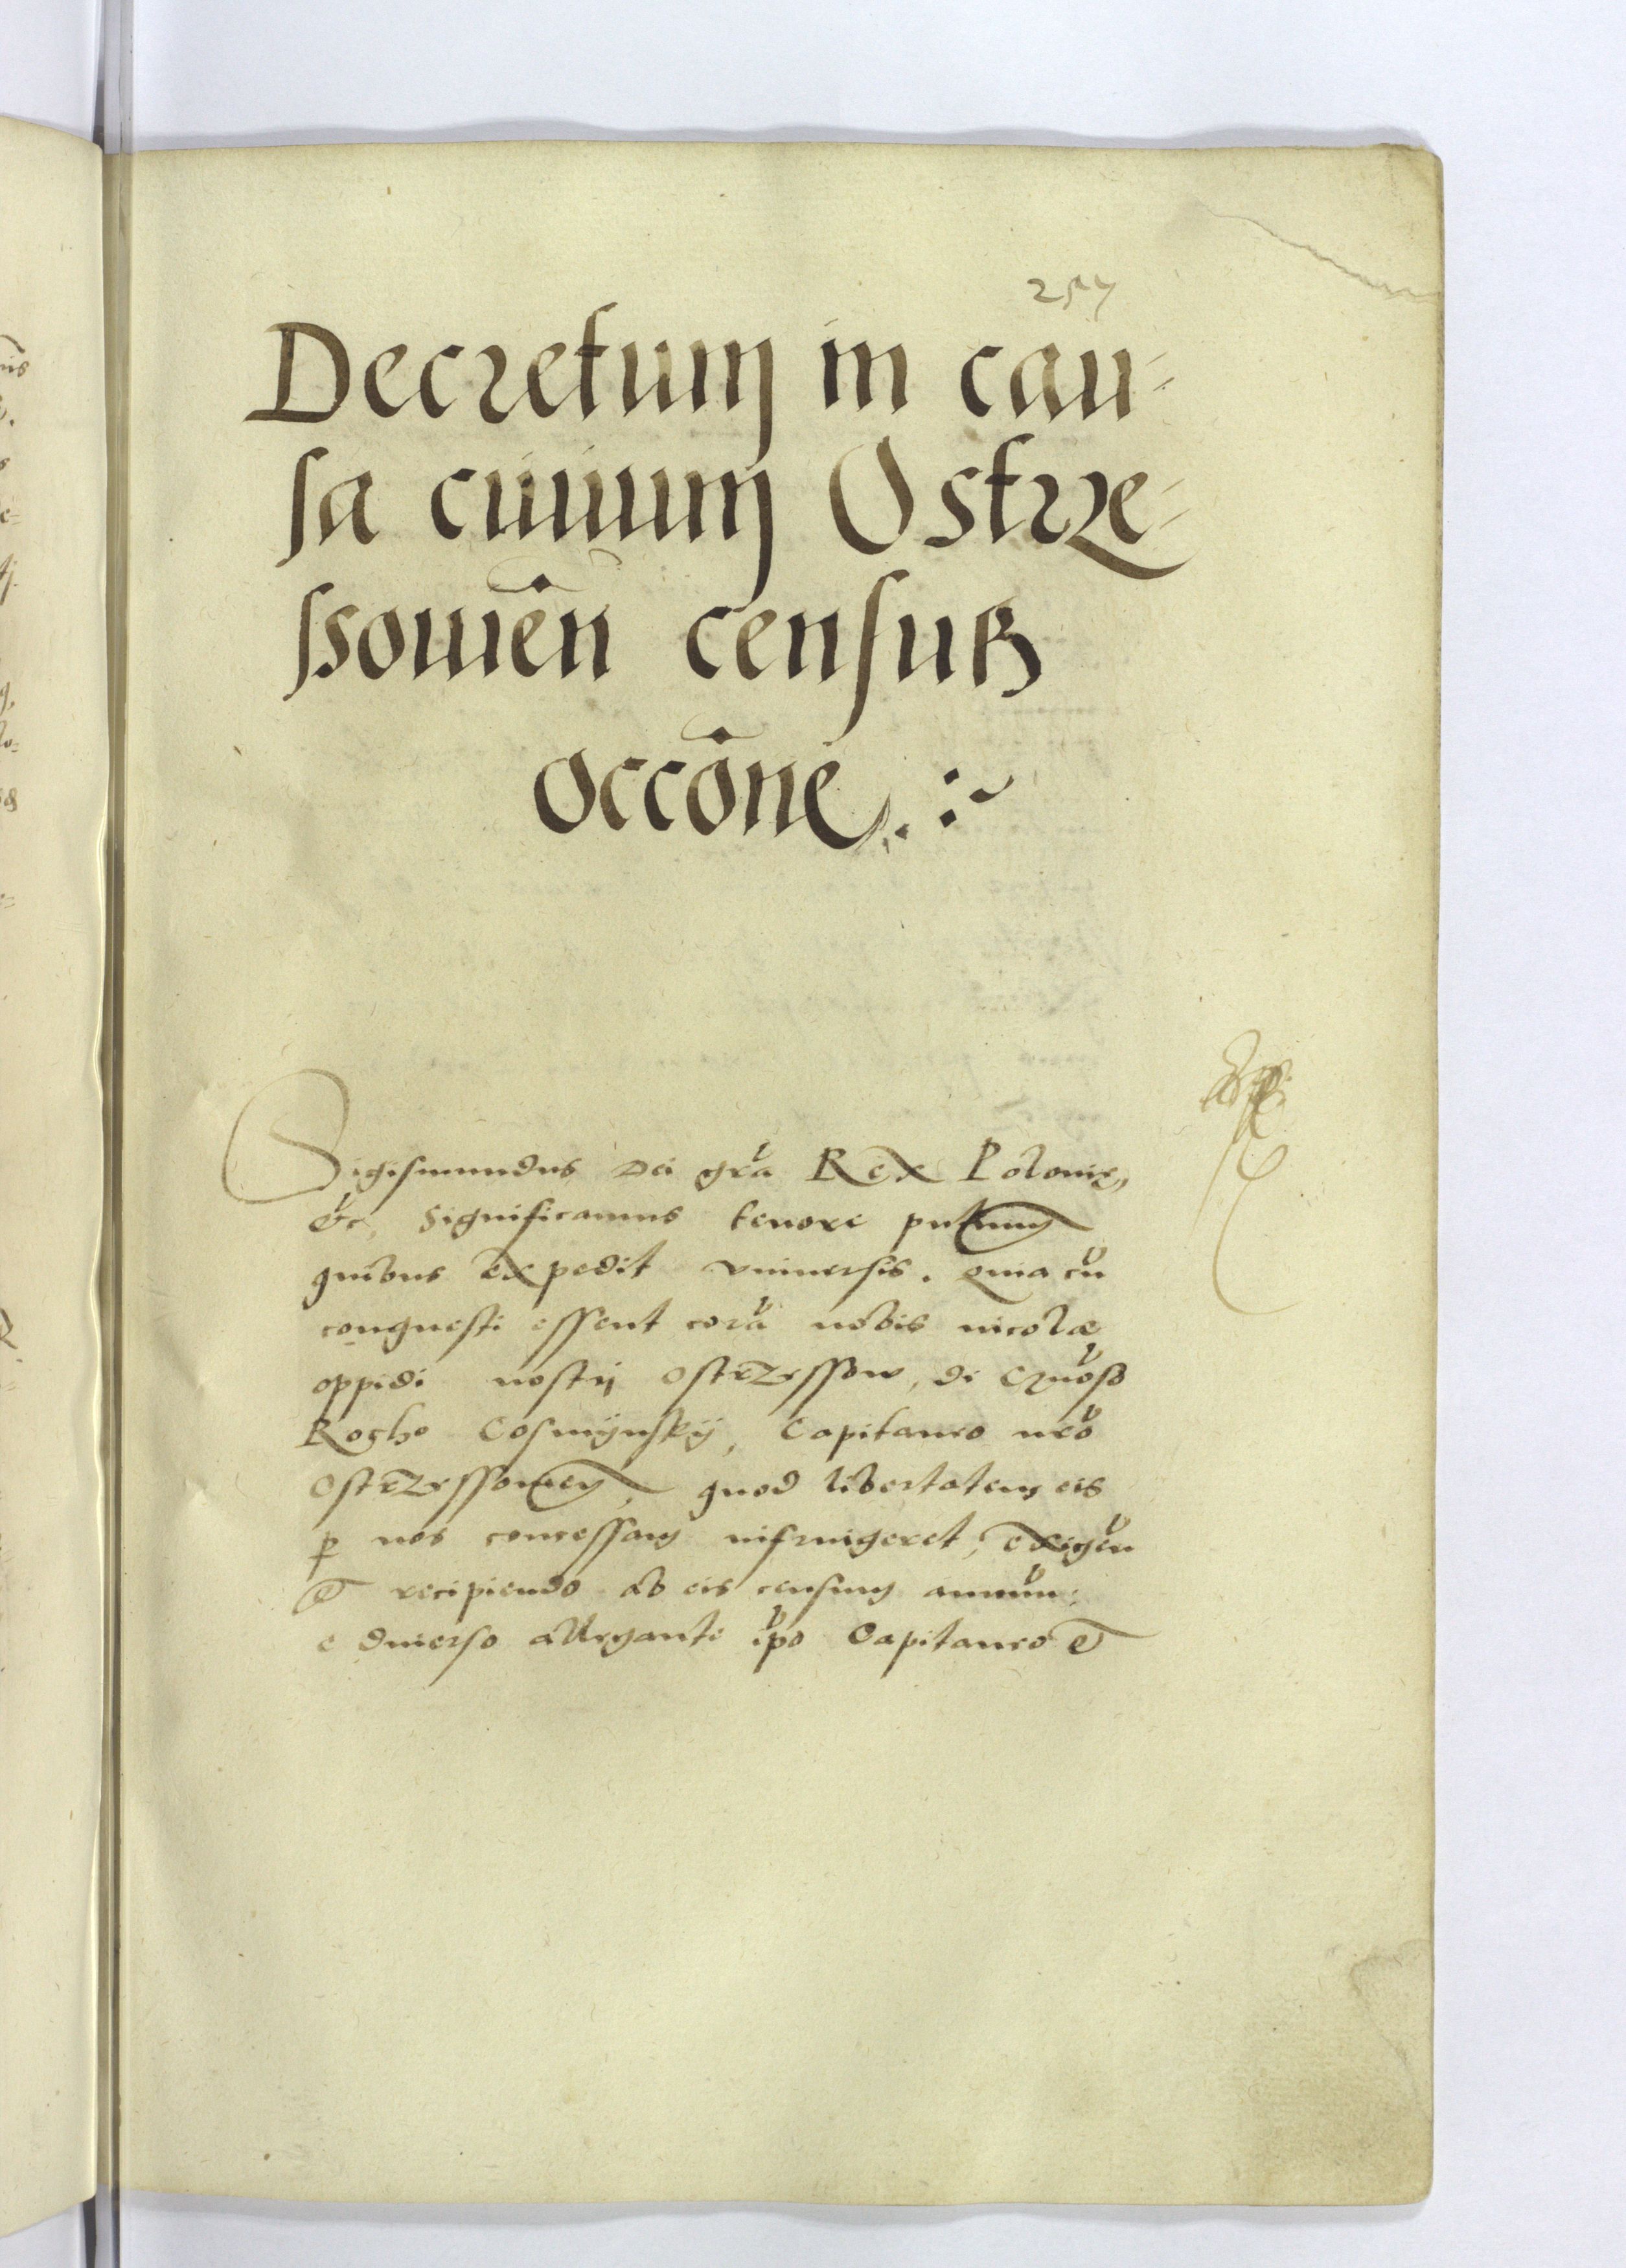 257
Decretum in cau-
sa ciuium Ostrze-
ssouien̄ censuꝝ
occōne.
Sigismundus Dei gra Rex Polonię,
&c, Significamus tenore pntium
quibus expedit vniuersis. Quia cū
conquesti essent corā nobis incolæ
oppidi nostrj Ostrzessow, de gnoso
Kosmÿnskÿ, Capitaneo nrō
Ostrzessowien, quod libertatem eis
ꝑ nos concessam infringeret, exigen
& recipiendo ab eis censum annuū:
e diuerso allegante ipō Capitaneo &